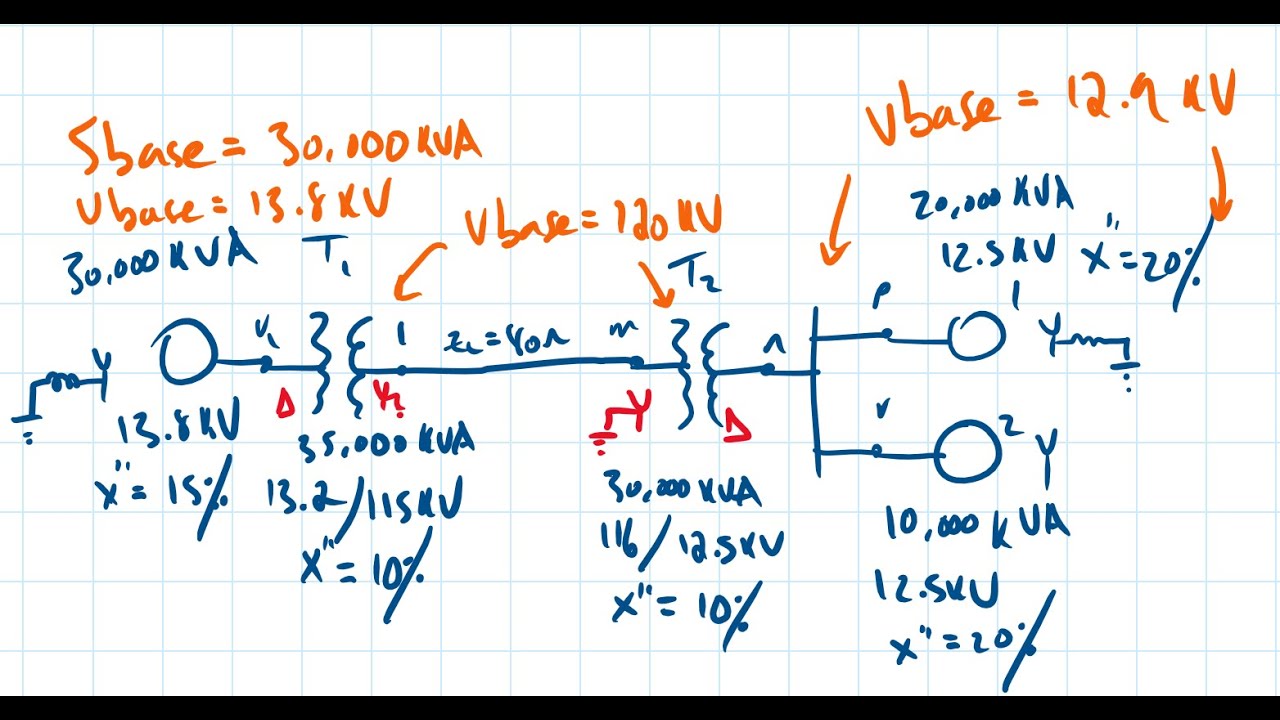 Sbase = 30,000 KVA
Vbase = 13.8 KV
30,000 KVA
T1
Vbase = 120 KV
T2
Vbase = 12.9 KV
20,000 KVA
12.5 KV
X" = 20%
1
p
l
ZL = 80Ω
m
n
Y
Y
Δ
Y
Δ
13.8 KV
X" = 15%
35,000 KVA
13.2/115 KV
X" = 10%
30,000 KVA
116/12.5 KV
X" = 10%
r
2
Y
10,000 KVA
12.5 KV
X" = 20%